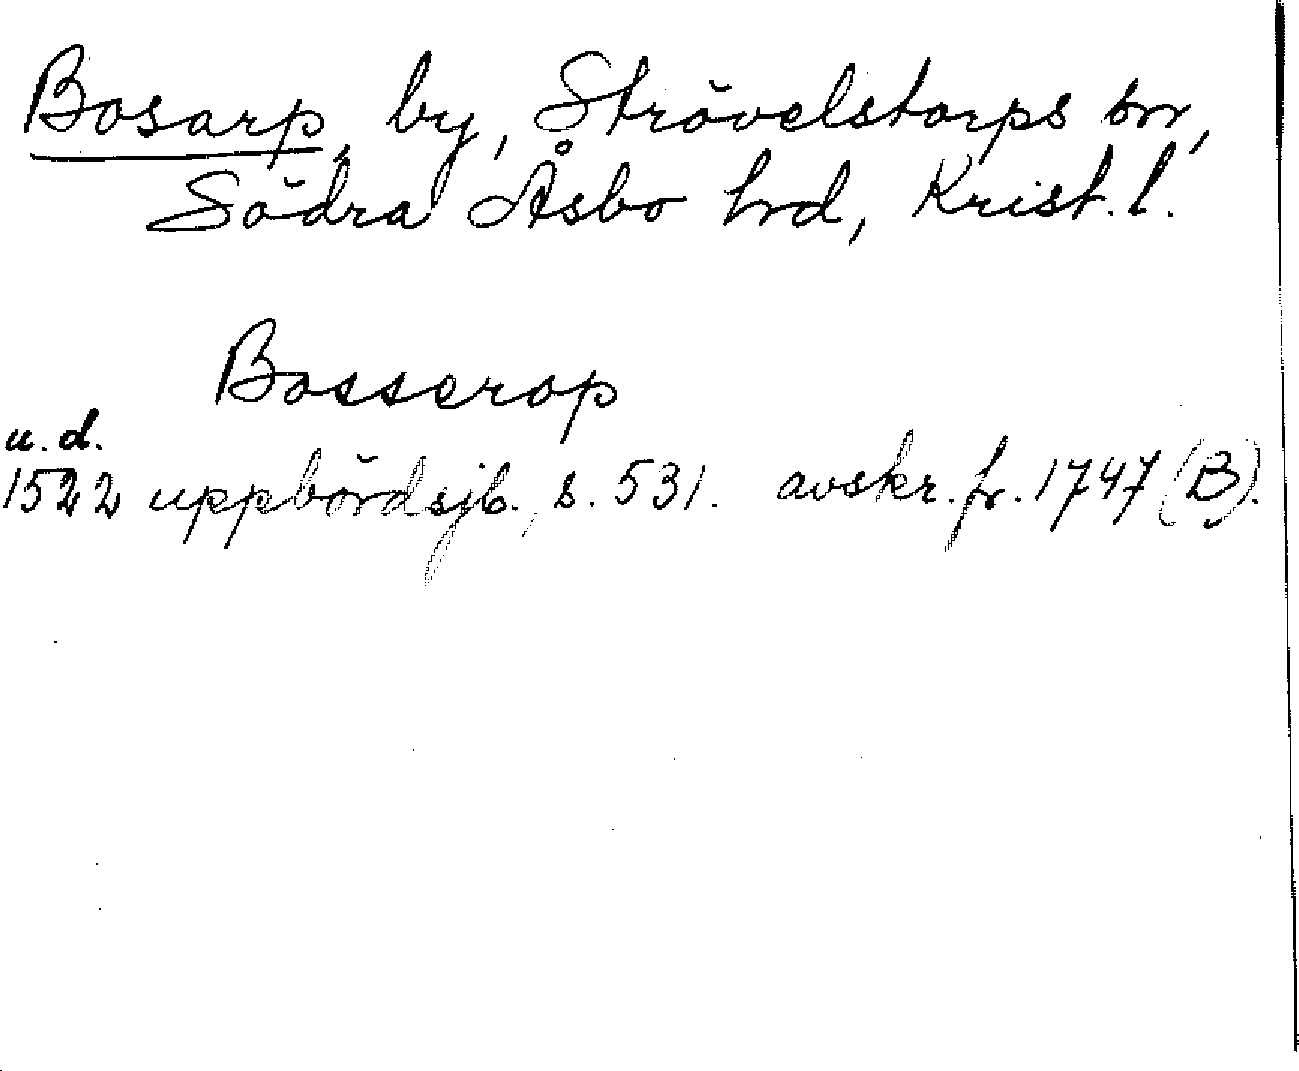 Bosarp, by, Strövelstorps sn,
Södra Åsbo hrd, Krist. l.
Bosserop
u. d.
1522 uppbördsjb., s. 531. avskr. fr. 1747 (B).